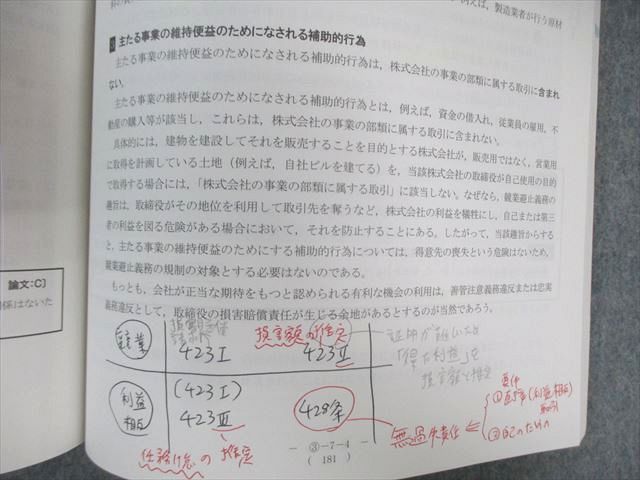 例えば，製造業者が行う原材
主たる事業の維持便益のためになされる補助的行為
主たる事業の維持便益のためになされる補助的行為は，株式会社の事業の部類に属する取引に含まれ
ない。
主たる事業の維持便益のためになされる補助的行為とは，例えば，資金の借入れ，従業員の雇用，不
動産の購入等が該当し，これらは，株式会社の事業の部類に属する取引に含まれない。
具体的には，建物を建設してそれを販売することを目的とする株式会社が，販売用ではなく，営業用
に取得を計画している土地（例えば，自社ビルを建てる）を，当該株式会社の取締役が自己使用の目的
で取得する場合には，「株式会社の事業の部類に属する取引」に該当しない。なぜなら，競業避止義務の
趣旨は，取締役がその地位を利用して取引先を奪うなど，株式会社の利益を犠牲にし，自己または第三
者の利益を図る危険がある場合において，それを防止することにある。したがって，当該趣旨からする
と，主たる事業の維持便益のためにする補助的行為については，得意先の喪失という危険はないため，
競業避止義務の規制の対象とする必要はないのである。
もっとも，会社が正当な期待をもつと認められる有利な機会の利用は，善管注意義務違反または忠実
義務違反として，取締役の損害賠償責任が生じる余地があるとするのが当然であろう。
論文:C］
係はないた
競業
損害賠償
423Ⅰ
損害額の推定
423Ⅱ
証明が難しいため
「得た利益」を
損害額と推定
利益
相反
(423Ⅰ)
423Ⅲ
428条
任務懈怠の推定
無過失責任
要件
①直接(利益相反)
取引
②自己のための
－ ③－7－4 －
( 181 )